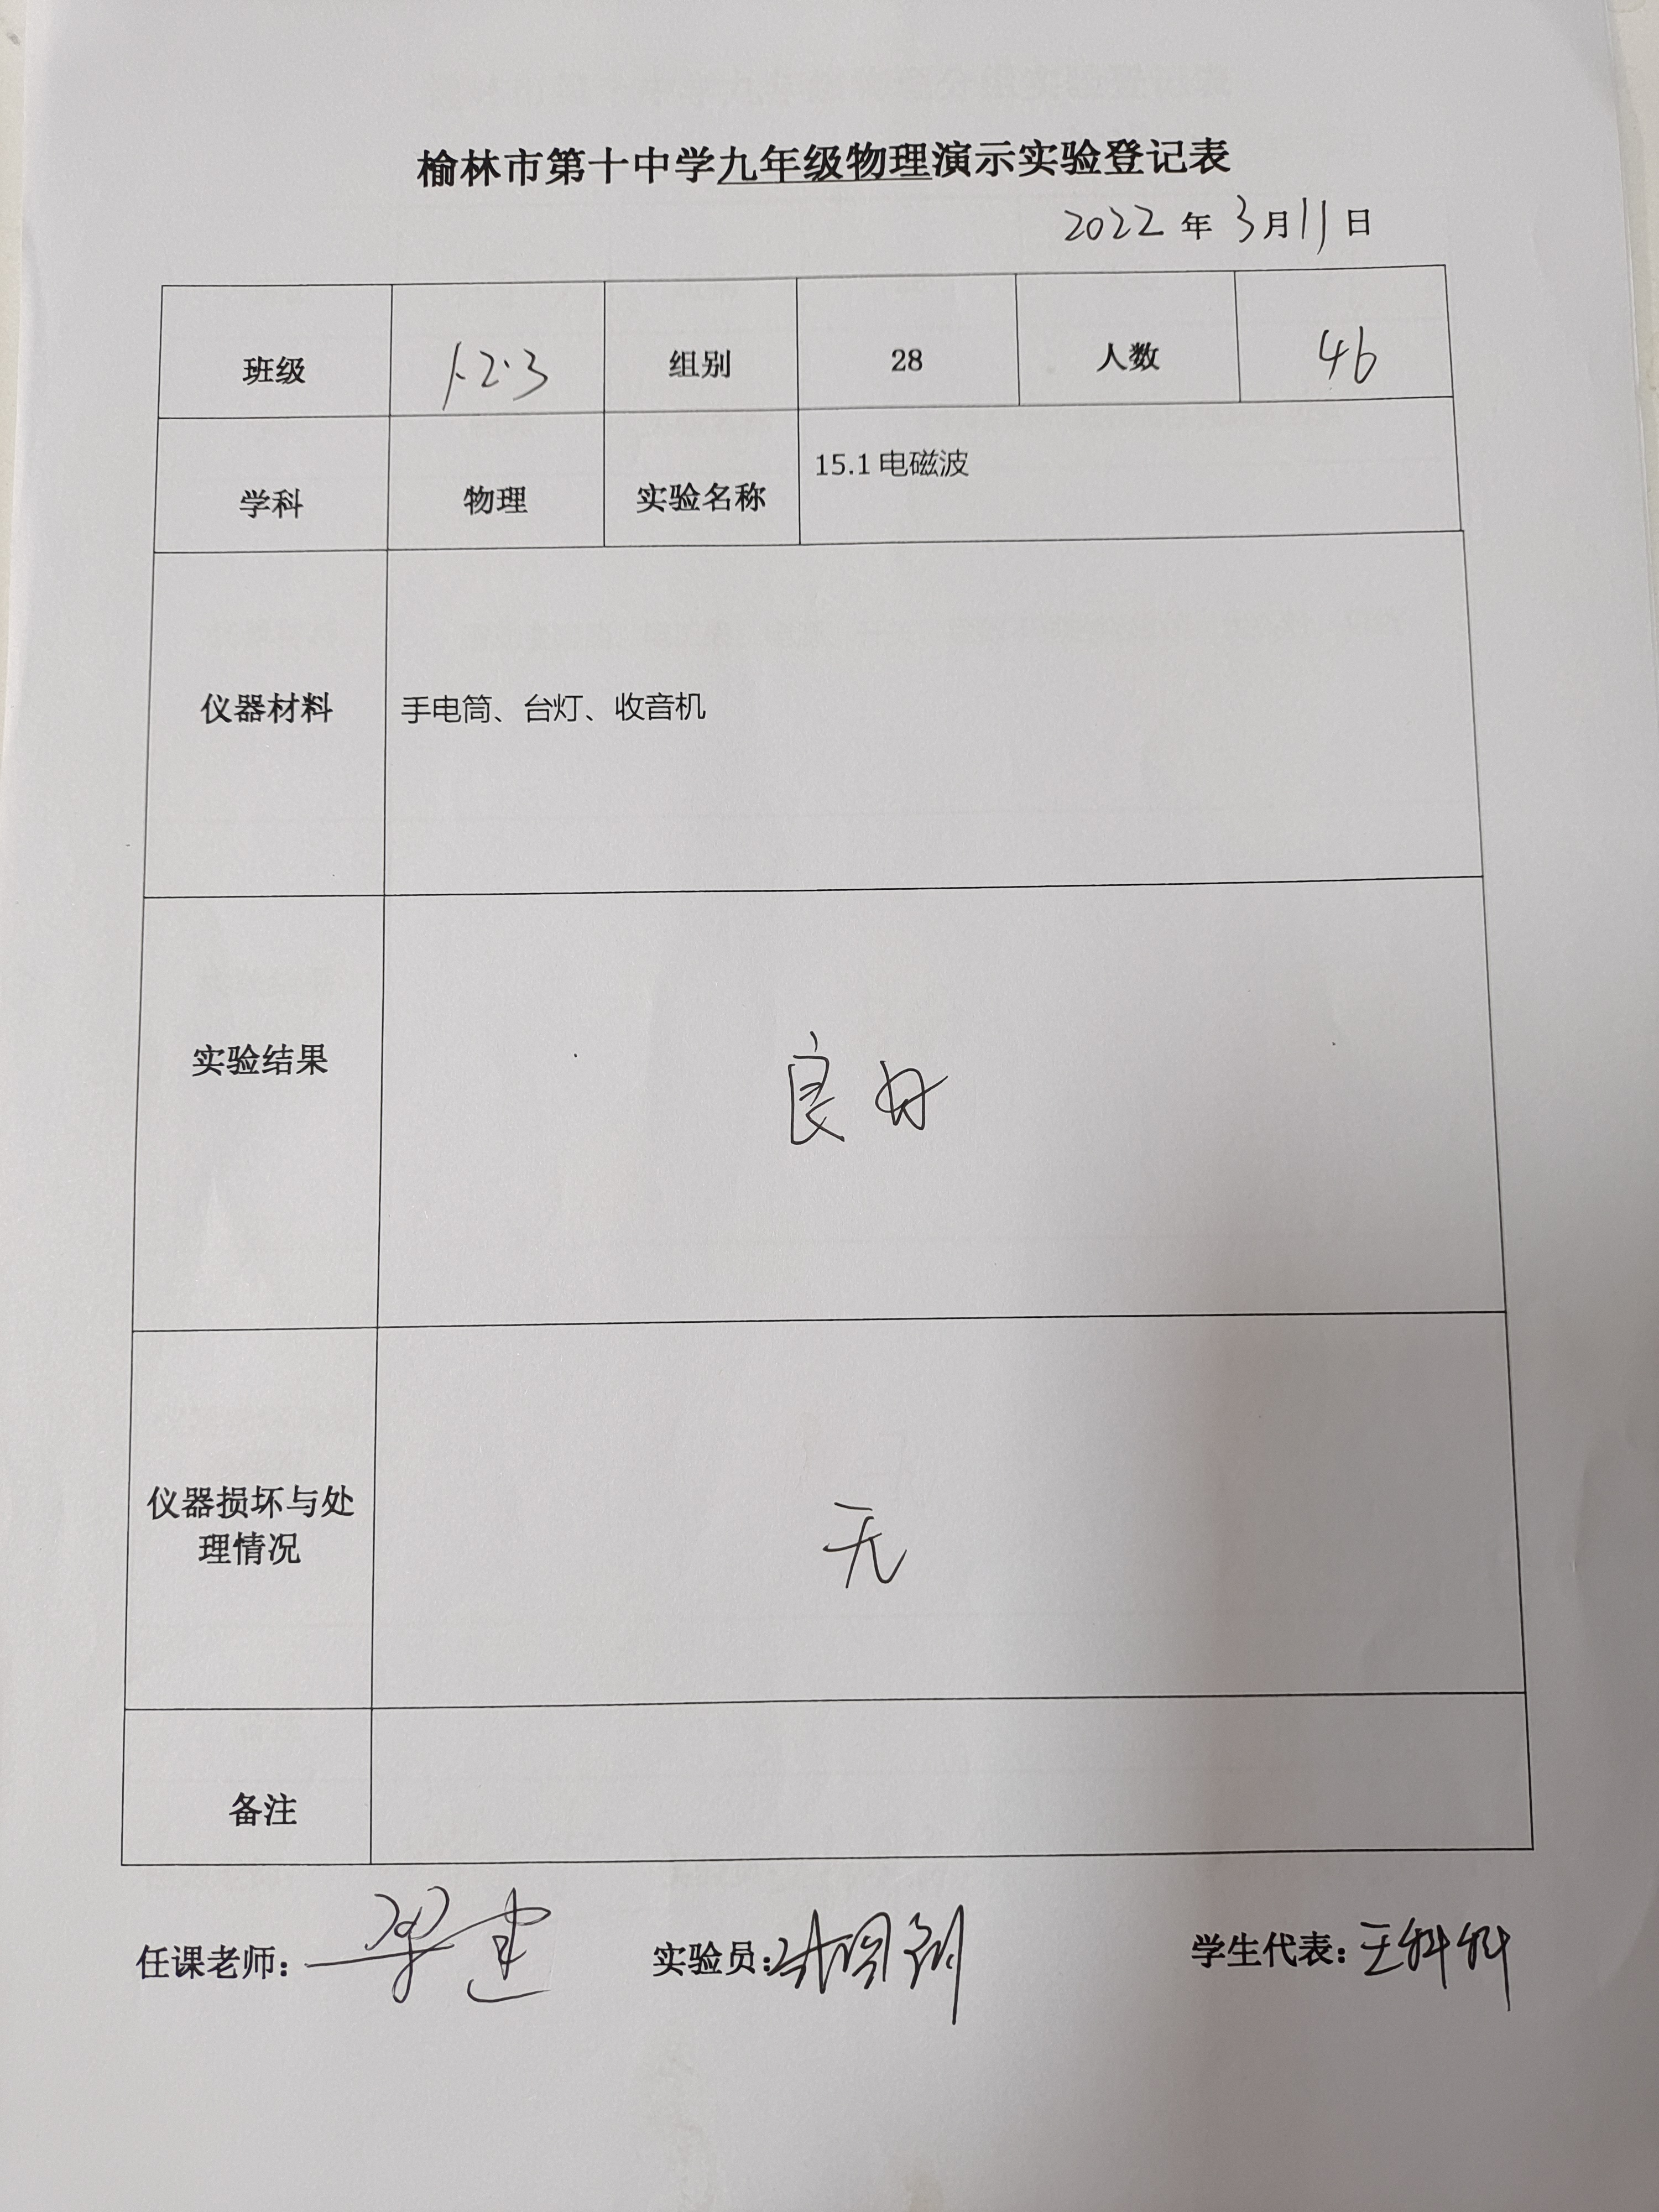 榆林市第十中学九年级物理演示实验登记表
2022 年 3月11日
班级 1.2.3 组别 28 人数 46
学科 物理 实验名称 15.1 电磁波
仪器材料 手电筒、台灯、收音机
实验结果 良好
仪器损坏与处
理情况 无
备注
任课老师: 实验员: 学生代表: 王